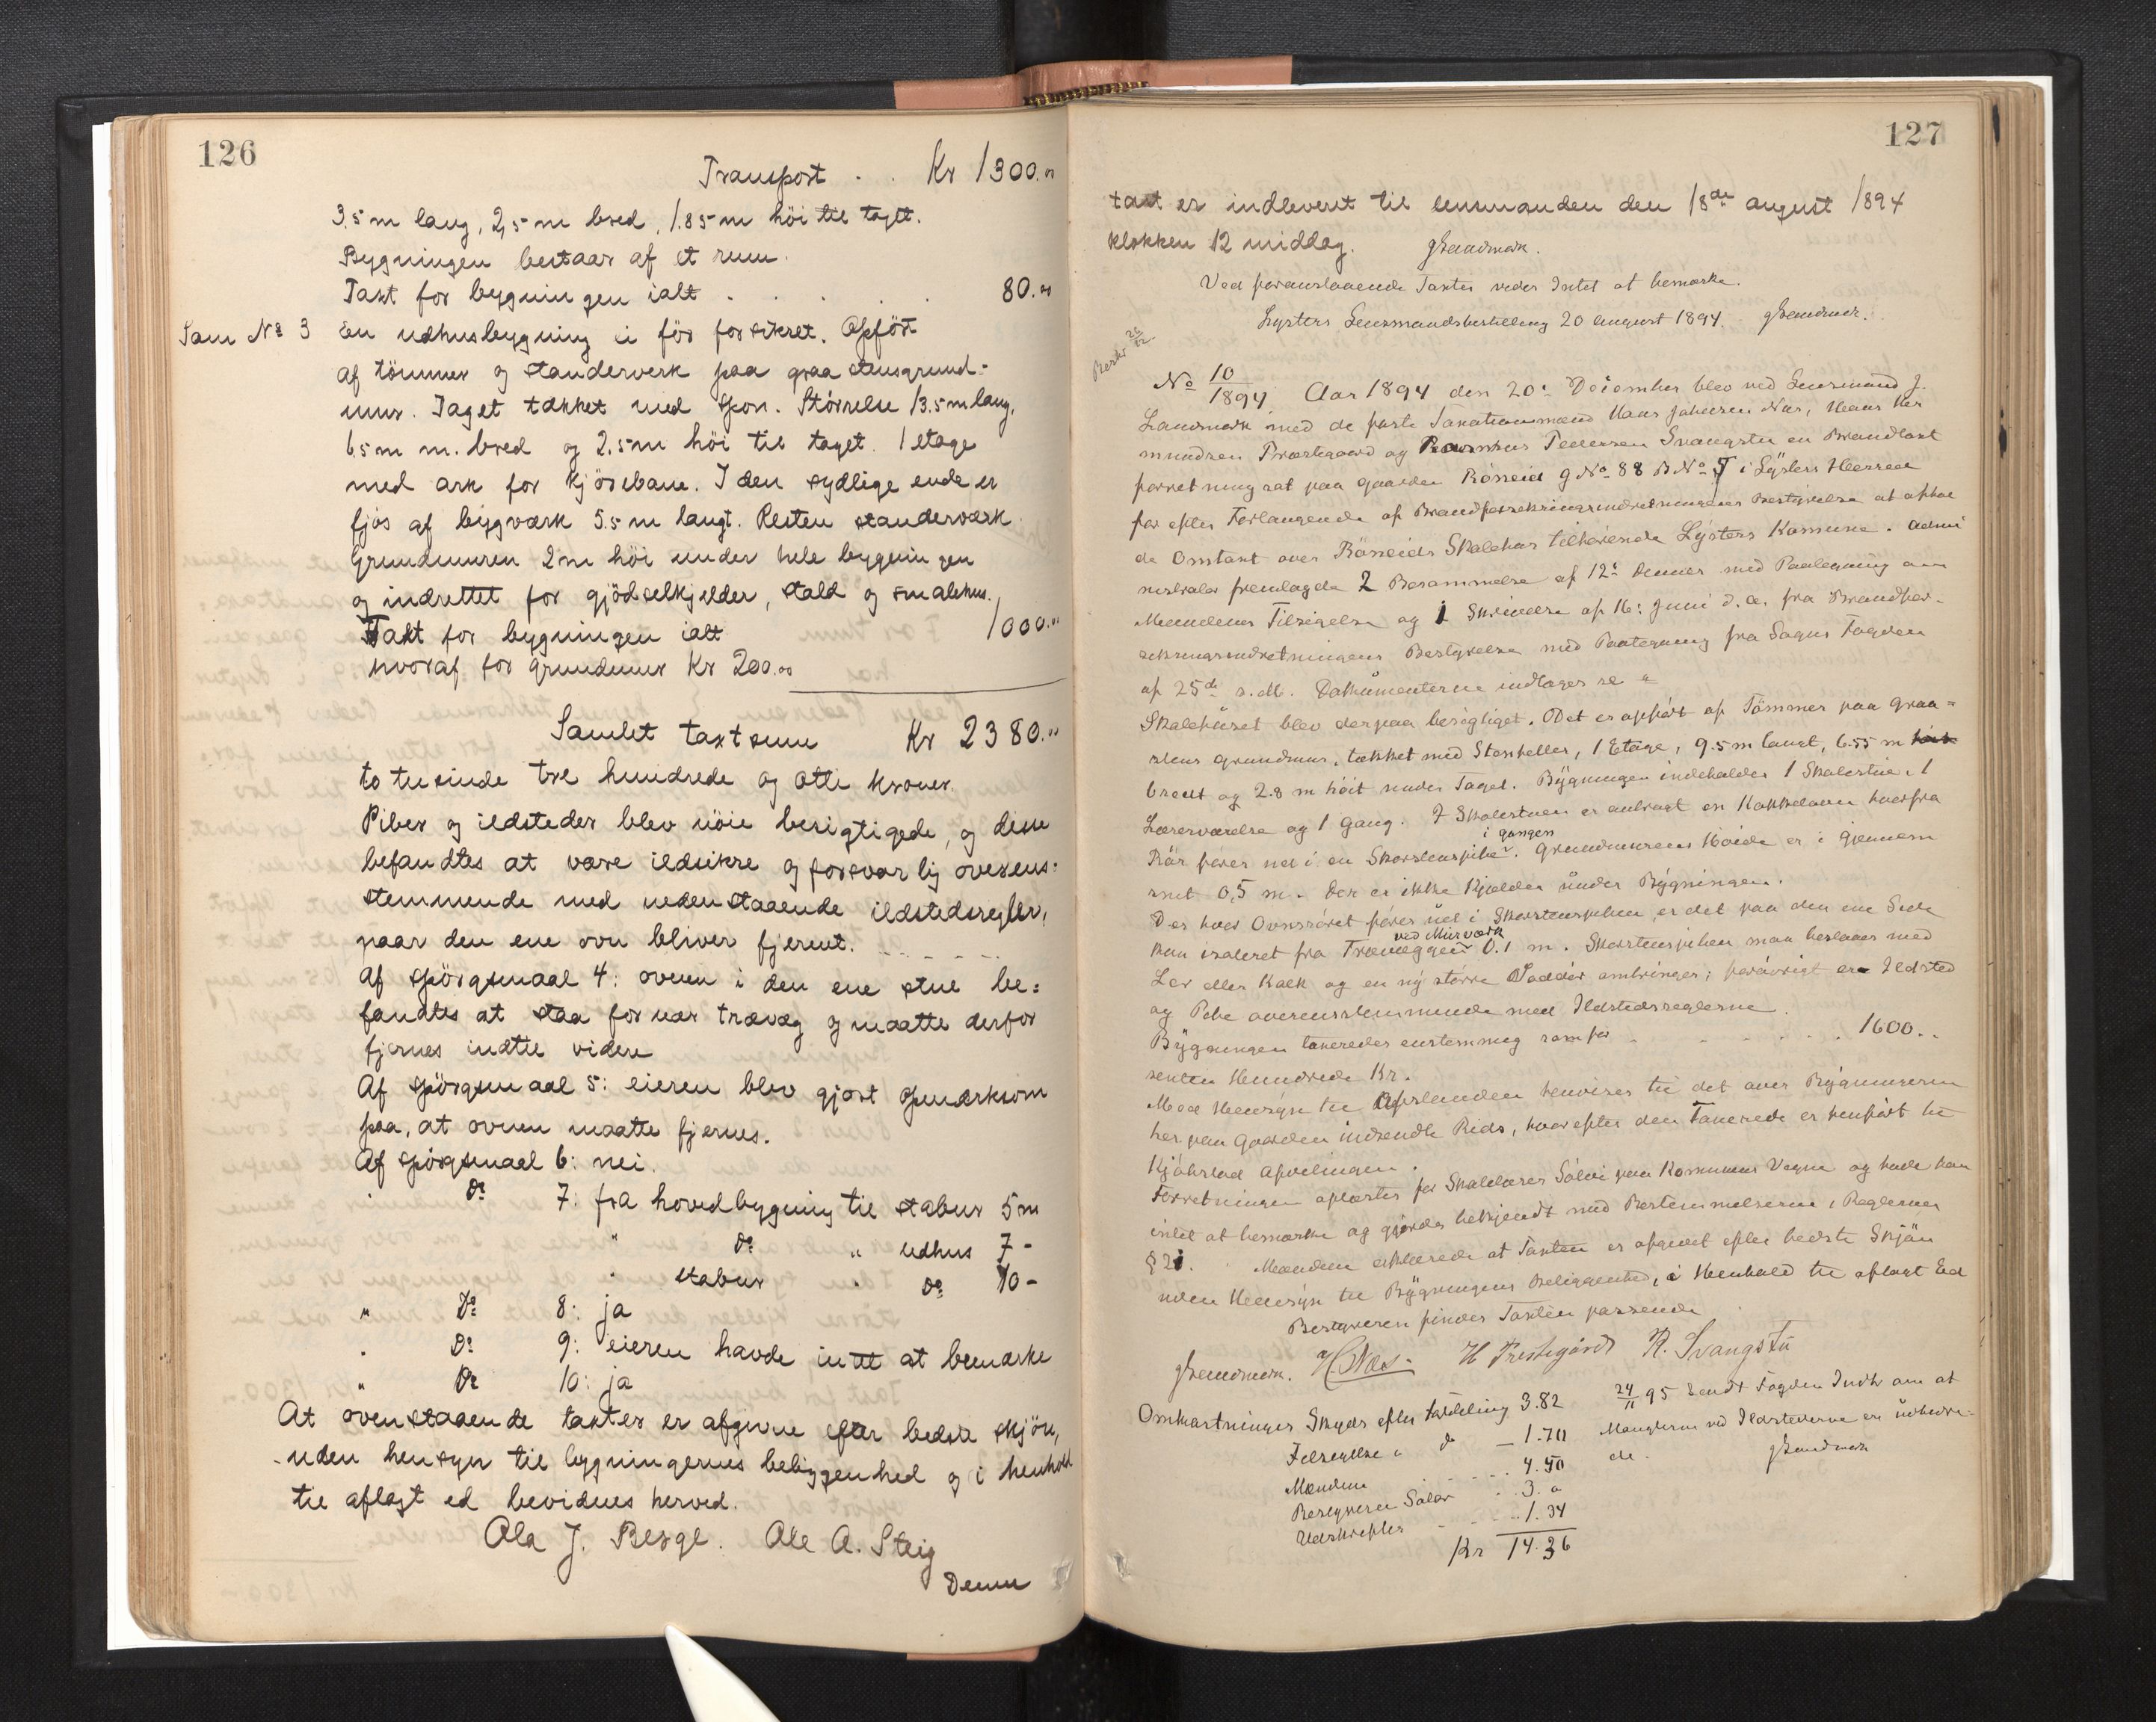 126
Transport . . Kr 1300.00
3,5 m lang, 2,5 m bred, 1.85 m höi til taget.
Bygningen bestaar af et rum.
Taxt for bygningen ialt . . . . . 80.00
Som No 3 En udhusbygning ei för forsikret. Opfört
af tömmer og standerverk paa graastensgrund-
mur. Taget tækket med spon. Störrelse 13.5 m lang,
6.5 m m. bred og 2.5 m höi til taget. 1 etage
med ark for kjörebane. I den sydlige ende er
fjös af bygværk 5.5 m langt. Resten standerværk.
Grundmuren 2 m höi under hele bygningen
og indrettet for gjödselkjelder, stald og smalehus.
Taxt for bygningen ialt 1000.00
hvoraf for grundmur Kr 200.00
Samlet taxtsum Kr 2380.00
to tusinde tre hundrede og otti kroner.
Piber og ildsteder blev nöie besigtigede, og disse
befandtes at være ildsikre og forsvarlig overens-
stemmende med nedenstaaende ildstedsregler,
naar den ene ovn bliver fjernet. - - - -
Af spörgsmaal 4: ovnen i den ene stue be-
fandtes at staa for nær trævæg og maatte derfor
fjernes indtil videre
Af spörgsmaal 5: eieren blev gjort opmærksom
paa, at ovnen maatte fjernes.
Af spörgsmaal 6: nei.
" Do 7: fra hovedbygning til stabur 5 m
" Do " udhus 7 -
" stabur " Do 10 -
" Do 8: ja
" Do 9: eieren havde intet at bemærke
" Do 10: ja
At ovenstaaende taxter er afgivne efter bedste skjön,
uden hensyn til bygningernes beliggenhed og i henhold
til aflagt ed bevidnes herved.
Ola J. Berge. Ole A. Steig
Denne
127
taxt er indleveret til lensmanden den 18de august 1894
klokken 12 middag. Landmark.
Ved foranstaaende Taxter vides Intet at bemærke.
Lysters Lensmandsbestilling 20 august 1894. Landmark.
No 10/1894. Aar 1894 den 20: December blev ved Lensmand J.
Landmark med de faste Taxationsmænd Hans Johnsen Næs, Hans Her
mundsen Præstegaard og Rasmus Pedersen Svangstu en Brandtaxt
forretning sat paa Gaarden Röneid G No 88 B No 5 i Lysters Herred
for efter Forlangende af Brandforsikringsindretningens Bestyrelse at afhol
de Omtaxt over Röneids Skolehus tilhörende Lysters Komune. Admi
nistrator fremlagde 2 Berammelse af 12: dennes med Paategning om
Mændenes Tilsigelse og 1 Skrivelse af 16: Juni d.a. fra Brandfor-
sikringsindretningens Bestyrelse med Paategning fra Sogns Fogderi
af 25de s.M. Dokumenterne indtages se "
Skolehuset blev derpaa besigtiget. Det er opfört af Tömmer paa graa-
stens Grundmur, tækket med Stenheller, 1 Etage, 9.5 m langt, 6.55 m
bredt og 2.8 m höit under Taget. Bygningen indeholder 1 Skolestue, 1
Lærerværelse og 1 Gang. I Skolestuen er anbragt en Kakkelovn hvorfra
Rör förer ud i en Skorstenspibe i gangen. Grundmurens Höide er i Gjennem
snit 0,5 m. Der er ikke Kjælder under Bygningen.
Der hvor Ovnsröret förer ud i Skorstenspiben er det paa den ene Side
kun isoleret fra Trævæggen ved Murværk 0.1 m. Skorstenspiben maa beslaaes med
Ler eller Kalk og en ny större Soddör anbringes; forövrigt er Ildsted
og Pibe overensstemmende med Ildstedsreglerne.
Bygningen taxeredes enstemmig som för . . . . . . 1600. .
sexten Hundrede Kr.
Med Hensyn til Afstanden henvises til det over Bygningerne
her paa Gaarden indsendte Rids, hvorefter den Taxerede er henfört til
Forretningen oplæstes for Skolelærer Sölvi paa Komunens Vegne og havde han
intet at bemærke og gjordes bekjendt med Bestemmelserne i Reglernes
§ 21. Mændene erklærede at Taxten er afgivet efter bedste Skjön
uden Hensyn til Bygningens Beliggenhed, i Henhold til aflagt Ed
Bestyreren finder Taxten passende
Landmark. H. Næs. H Prestegård R. Svangstu
Omkostninger Skyds efter Fordeling 3.82
Tilsigelse " do — 1.70
Mændene - - - 4.50
Bestyreren Salær . . 3. "
Udskrifter - - - 1.34
Kr 14.36
24/11 95 Sendt Fogden Indb om at
Manglerne ved Ildstederne er udbedre-
de. Landmark